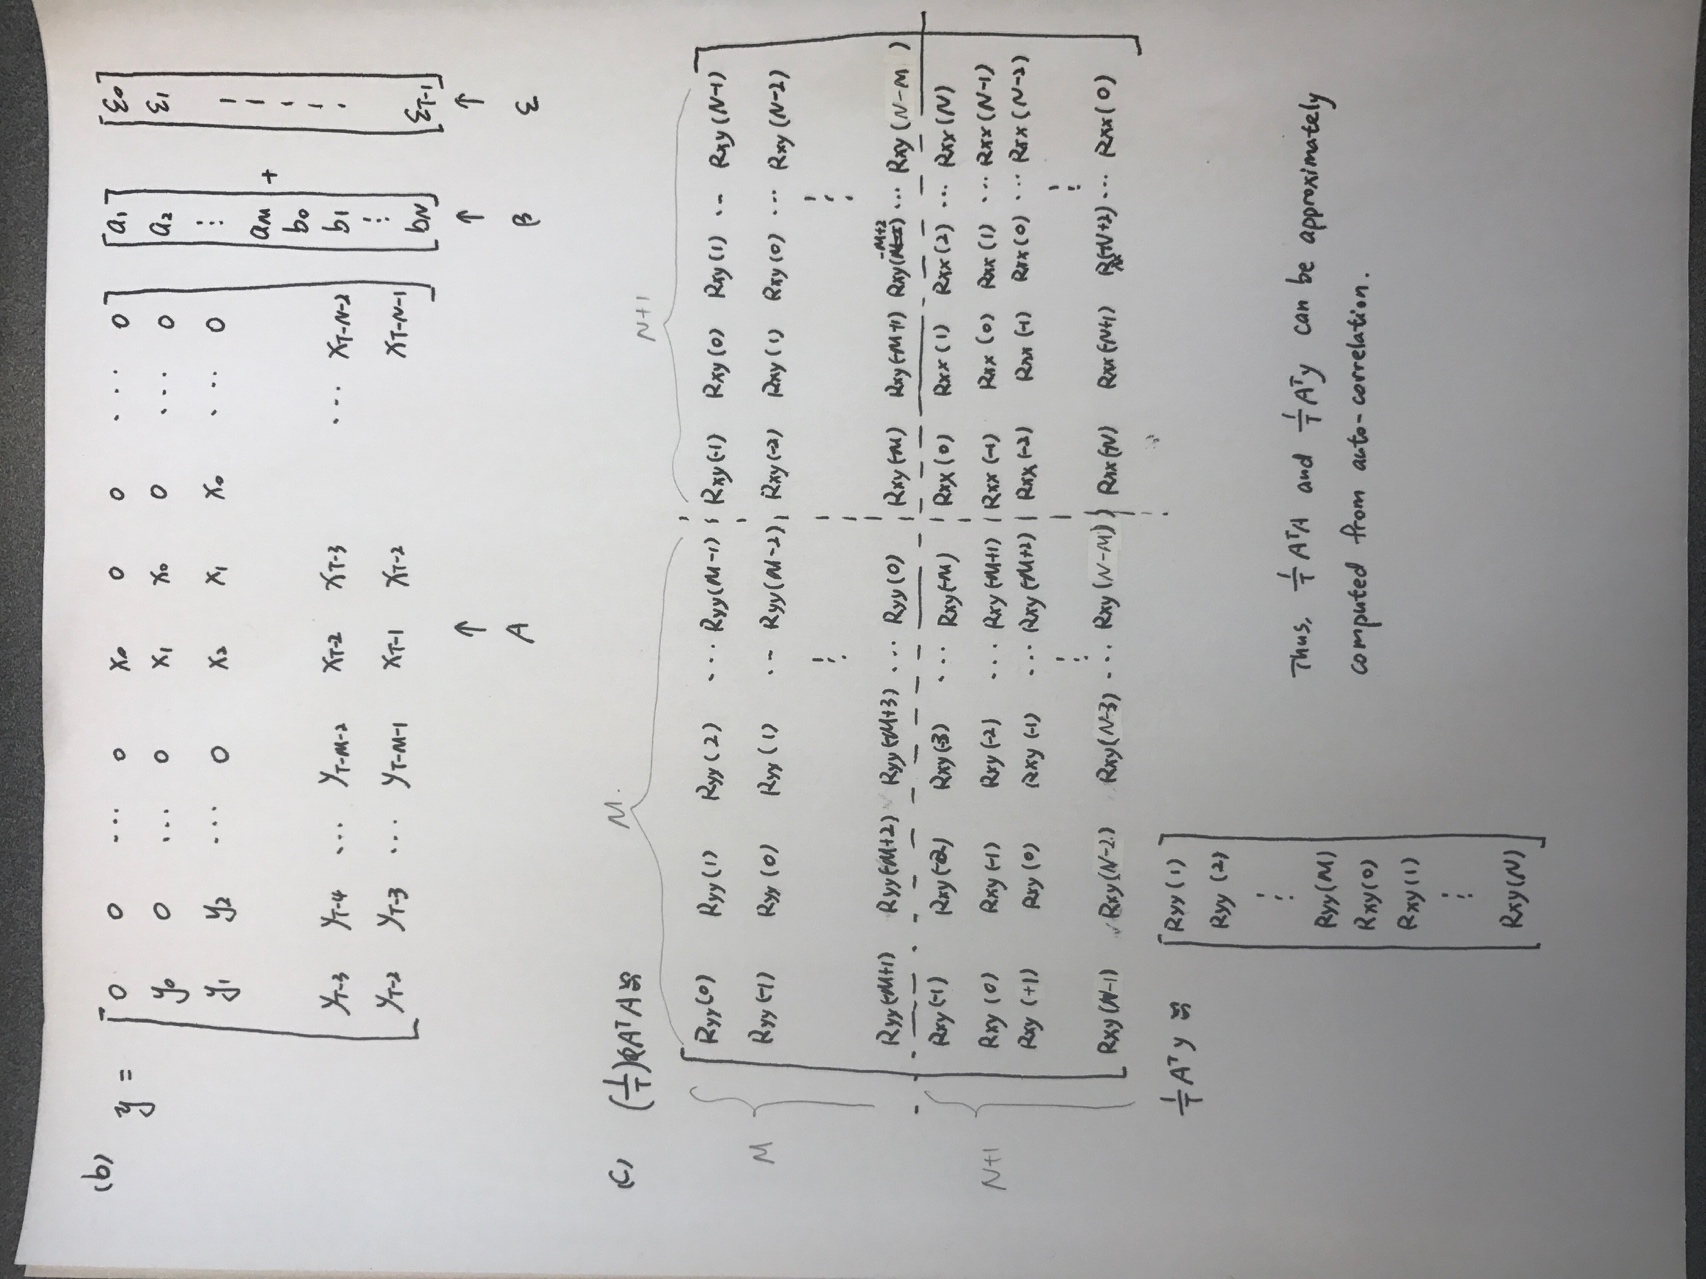 (b)
y = [ 0 0 ... 0 x₀ 0 0 ... 0 ] [ a₁ ] [ ε₀ ]
y₀ 0 ... 0 x₁ x₀ 0 ... 0 a₂ ε₁
y₁ y₂ ... 0 x₂ x₁ x₀ ... 0 ⋮ ⋮
a_M +
b₀
y_{T-3} y_{T-4} ... y_{T-M-2} x_{T-2} x_{T-3} ... x_{T-N-2} b₁
⋮
y_{T-2} y_{T-3} ... y_{T-M-1} x_{T-1} x_{T-2} x_{T-N-1} b_N ε_{T-1}
↑ ↑ ↑
A β ε
(c) (1/T) AᵀA ≈
M N+1
Ryy(0) Ryy(1) Ryy(2) ... Ryy(M-1) Rxy(-1) Rxy(0) Rxy(1) ... Rxy(N-1)
M Ryy(-1) Ryy(0) Ryy(1) ... Ryy(M-2) Rxy(-2) Rxy(1) Rxy(0) ... Rxy(N-2)
⋮ ⋮
Ryy(-M+1) Ryy(-M+2) Ryy(-M+3) ... Ryy(0) Rxy(-M) Rxy(-M+1) Rxy(-M+2) ... Rxy(N-M)
Rxy(-1) Rxy(-2) Rxy(-3) ... Rxy(-M) Rxx(0) Rxx(1) Rxx(2) ... Rxx(N)
N+1 Rxy(0) Rxy(-1) Rxy(-2) ... Rxy(-M+1) Rxx(-1) Rxx(0) Rxx(1) ... Rxx(N-1)
Rxy(+1) Rxy(0) Rxy(-1) ... Rxy(-M+2) Rxx(-2) Rxx(-1) Rxx(0) ... Rxx(N-2)
⋮ ⋮
Rxy(N-1) Rxy(N-2) Rxy(N-3) ... Rxy(N-M) Rxx(-N) Rxx(-N+1) Rxx(-N+2) ... Rxx(0)
1/T Aᵀy ≈
Ryy(1)
Ryy(2)
⋮
Ryy(M)
Rxy(0)
Rxy(1)
⋮
Rxy(N)
Thus, 1/T AᵀA and 1/T Aᵀy can be approximately
computed from auto-correlation.